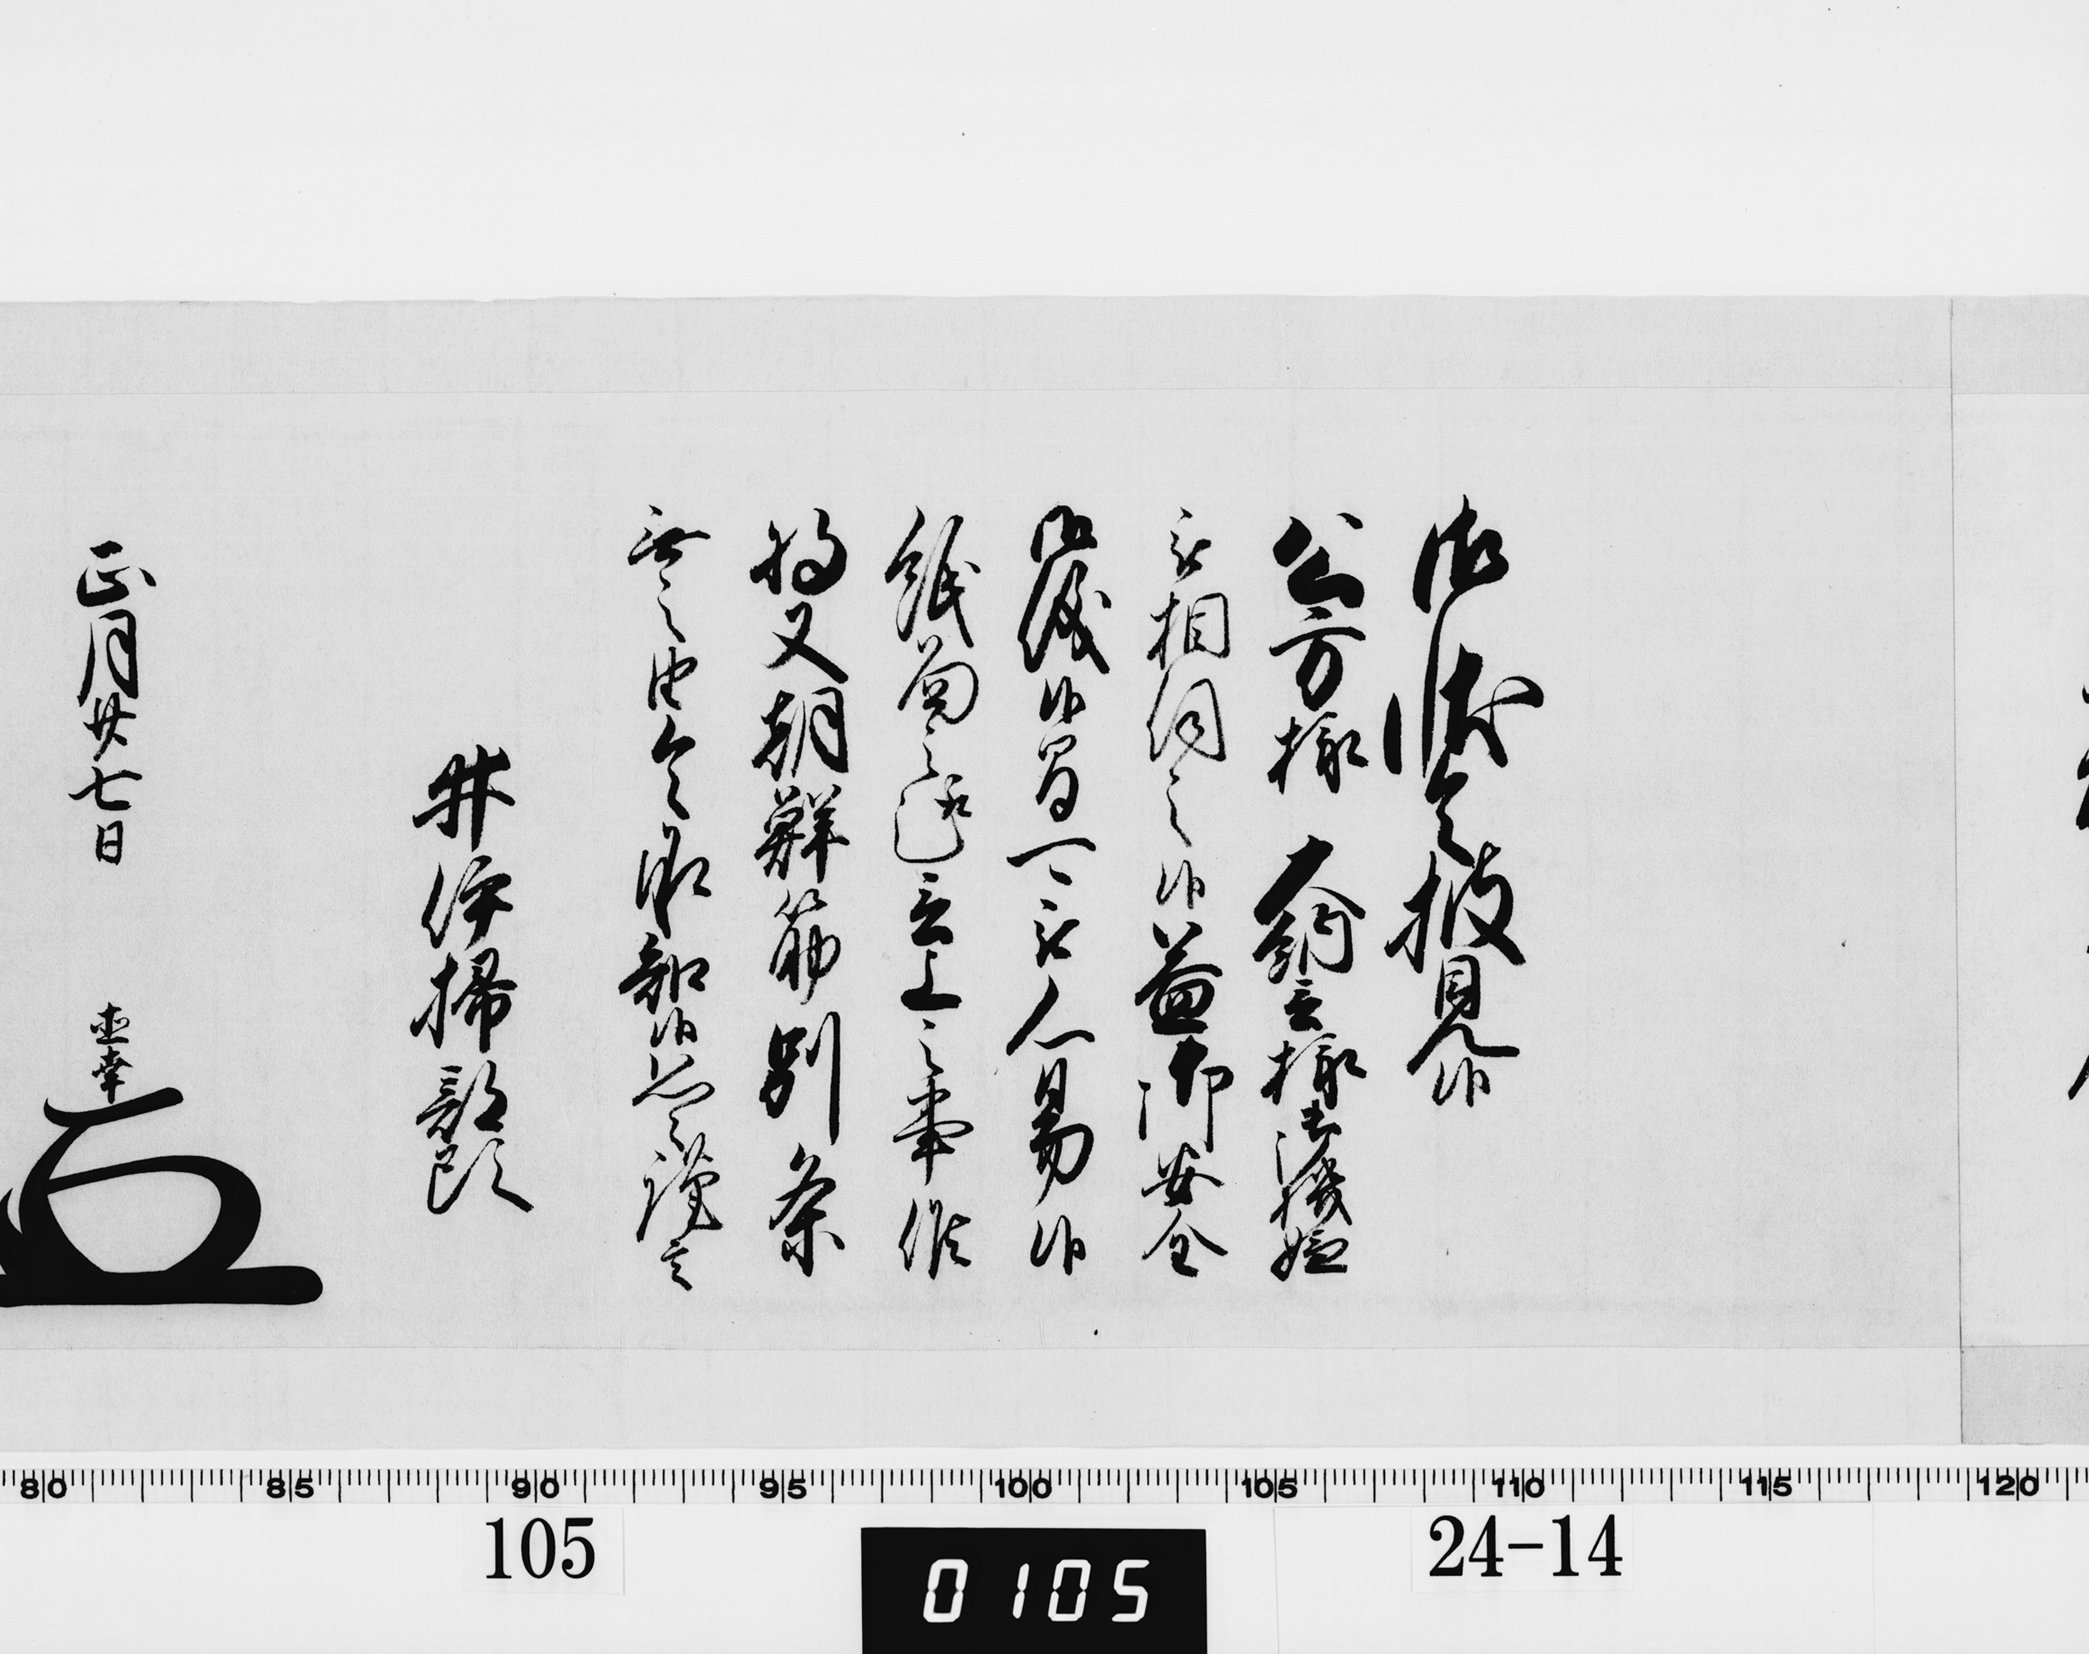 御状令披見候
公方様 大納言様御機嫌
被相伺之候益御安全
御儀候間可被心易候
紙面之趣言上之事候
将又朝鮮筋別条
無之由令承知候恐々謹言
井伊掃部頭
正月廿七日
直幸
80 85 90 95 100 105 110 115 120
105
0105
24-14